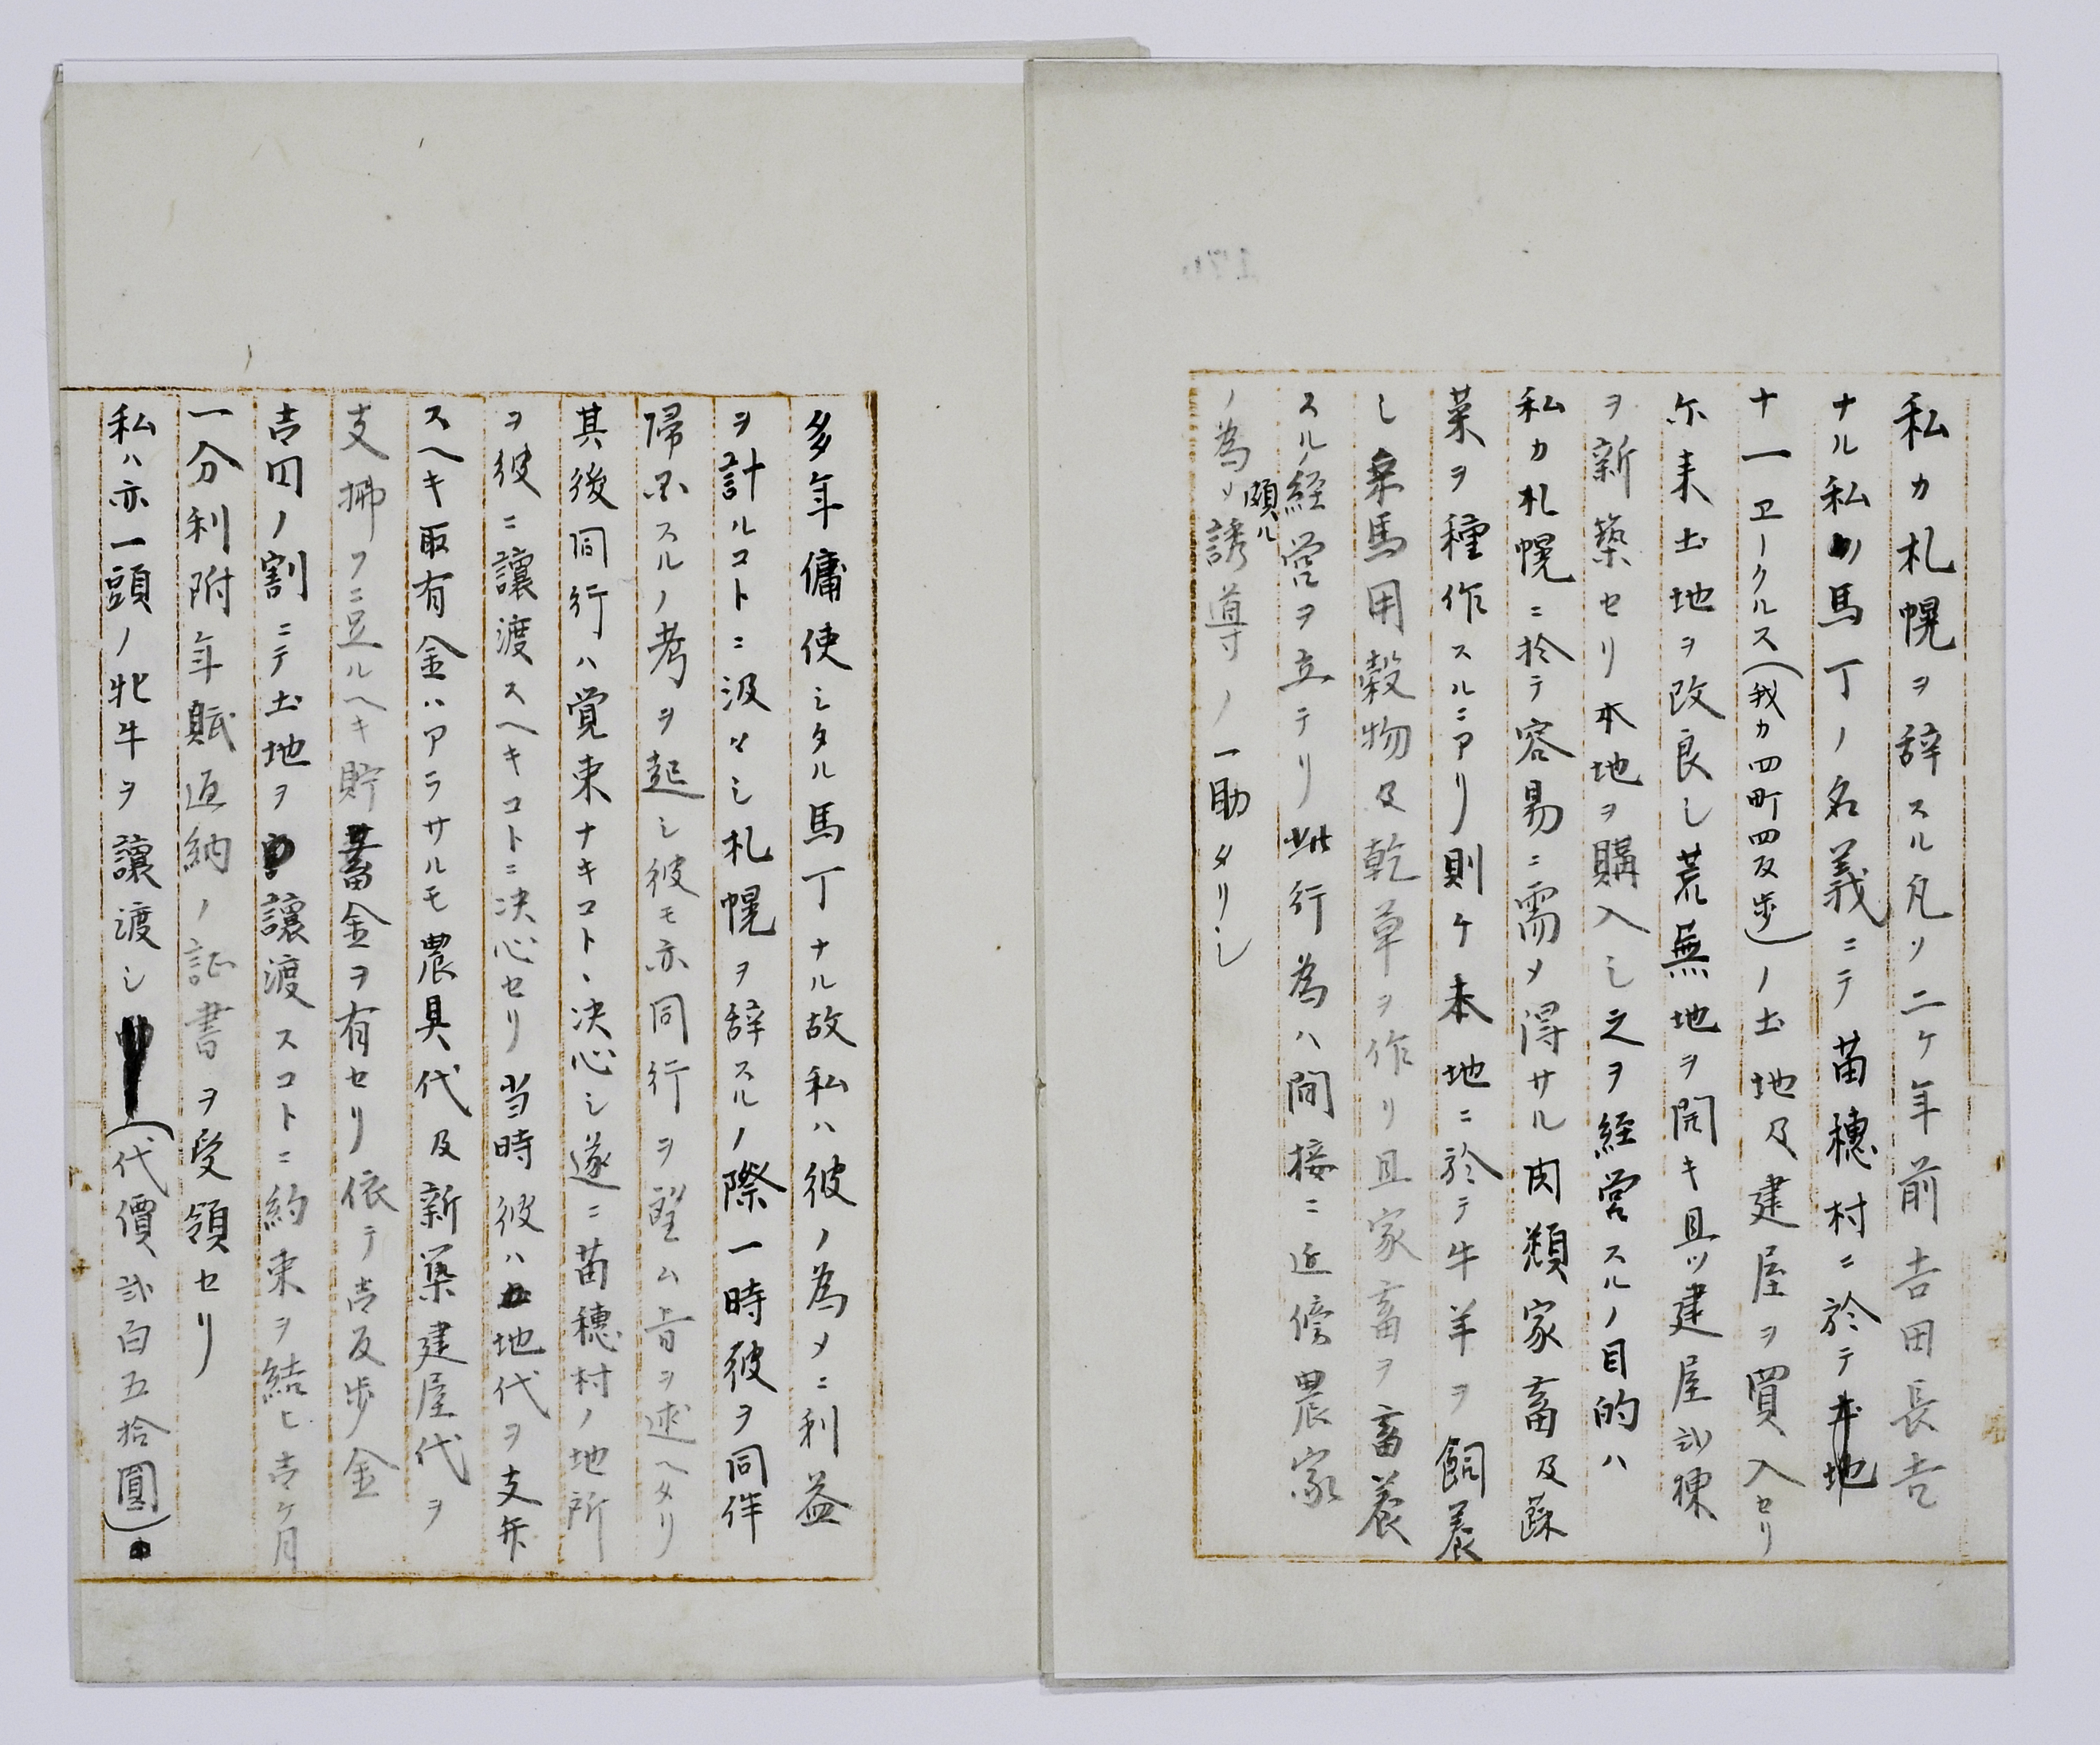 私カ札幌ヲ辞スル凡ソ二ケ年前吉田長吉
ナル私ノ馬丁ノ名義ニテ苗穂村ニ於テ
十一ヱークルス(我カ四町四反歩)ノ土地及建屋ヲ買入セリ
尓来土地ヲ改良シ荒蕪地ヲ開キ且ツ建屋弐棟
ヲ新築セリ本地ヲ購入シ之ヲ経営スルノ目的ハ
私カ札幌ニ於テ容易ニ需メ得サル肉類家畜及蔬
菜ヲ種作スルニアリ則ケ本地ニ於テ牛羊ヲ飼養
シ乗馬用穀物及乾草ヲ作リ且家畜ヲ畜養
スル経営ヲ立テリ此行為ハ間接ニ近傍農家
ノ為メ頗ル誘導ノ一助タリシ
多年傭使シタル馬丁ナル故私ハ彼ノ為メニ利益
ヲ計ルコトニ汲々シ札幌ヲ辞スルノ際一時彼ヲ同伴
帰国スルノ考ヲ起シ彼モ亦同行ヲ望ム旨ヲ述ヘタリ
其後同行ハ覚束ナキコト、決心シ遂ニ苗穂村ノ地所
ヲ彼ニ譲渡スヘキコトニ决心セリ当時彼ハ地代ヲ支弁
スヘキ取有金ハアラサルモ農具代及新築建屋代ヲ
支拂フニ足ルヘキ貯蓄金ヲ有セリ依テ壱反歩金
壱円ノ割ニテ土地ヲ譲渡スコトニ約束ヲ結ヒ壱ケ月
一分利附年賦返納ノ証書ヲ受領セリ
私ハ亦一頭ノ牝牛ヲ譲渡シ(代價弐百五拾圓)